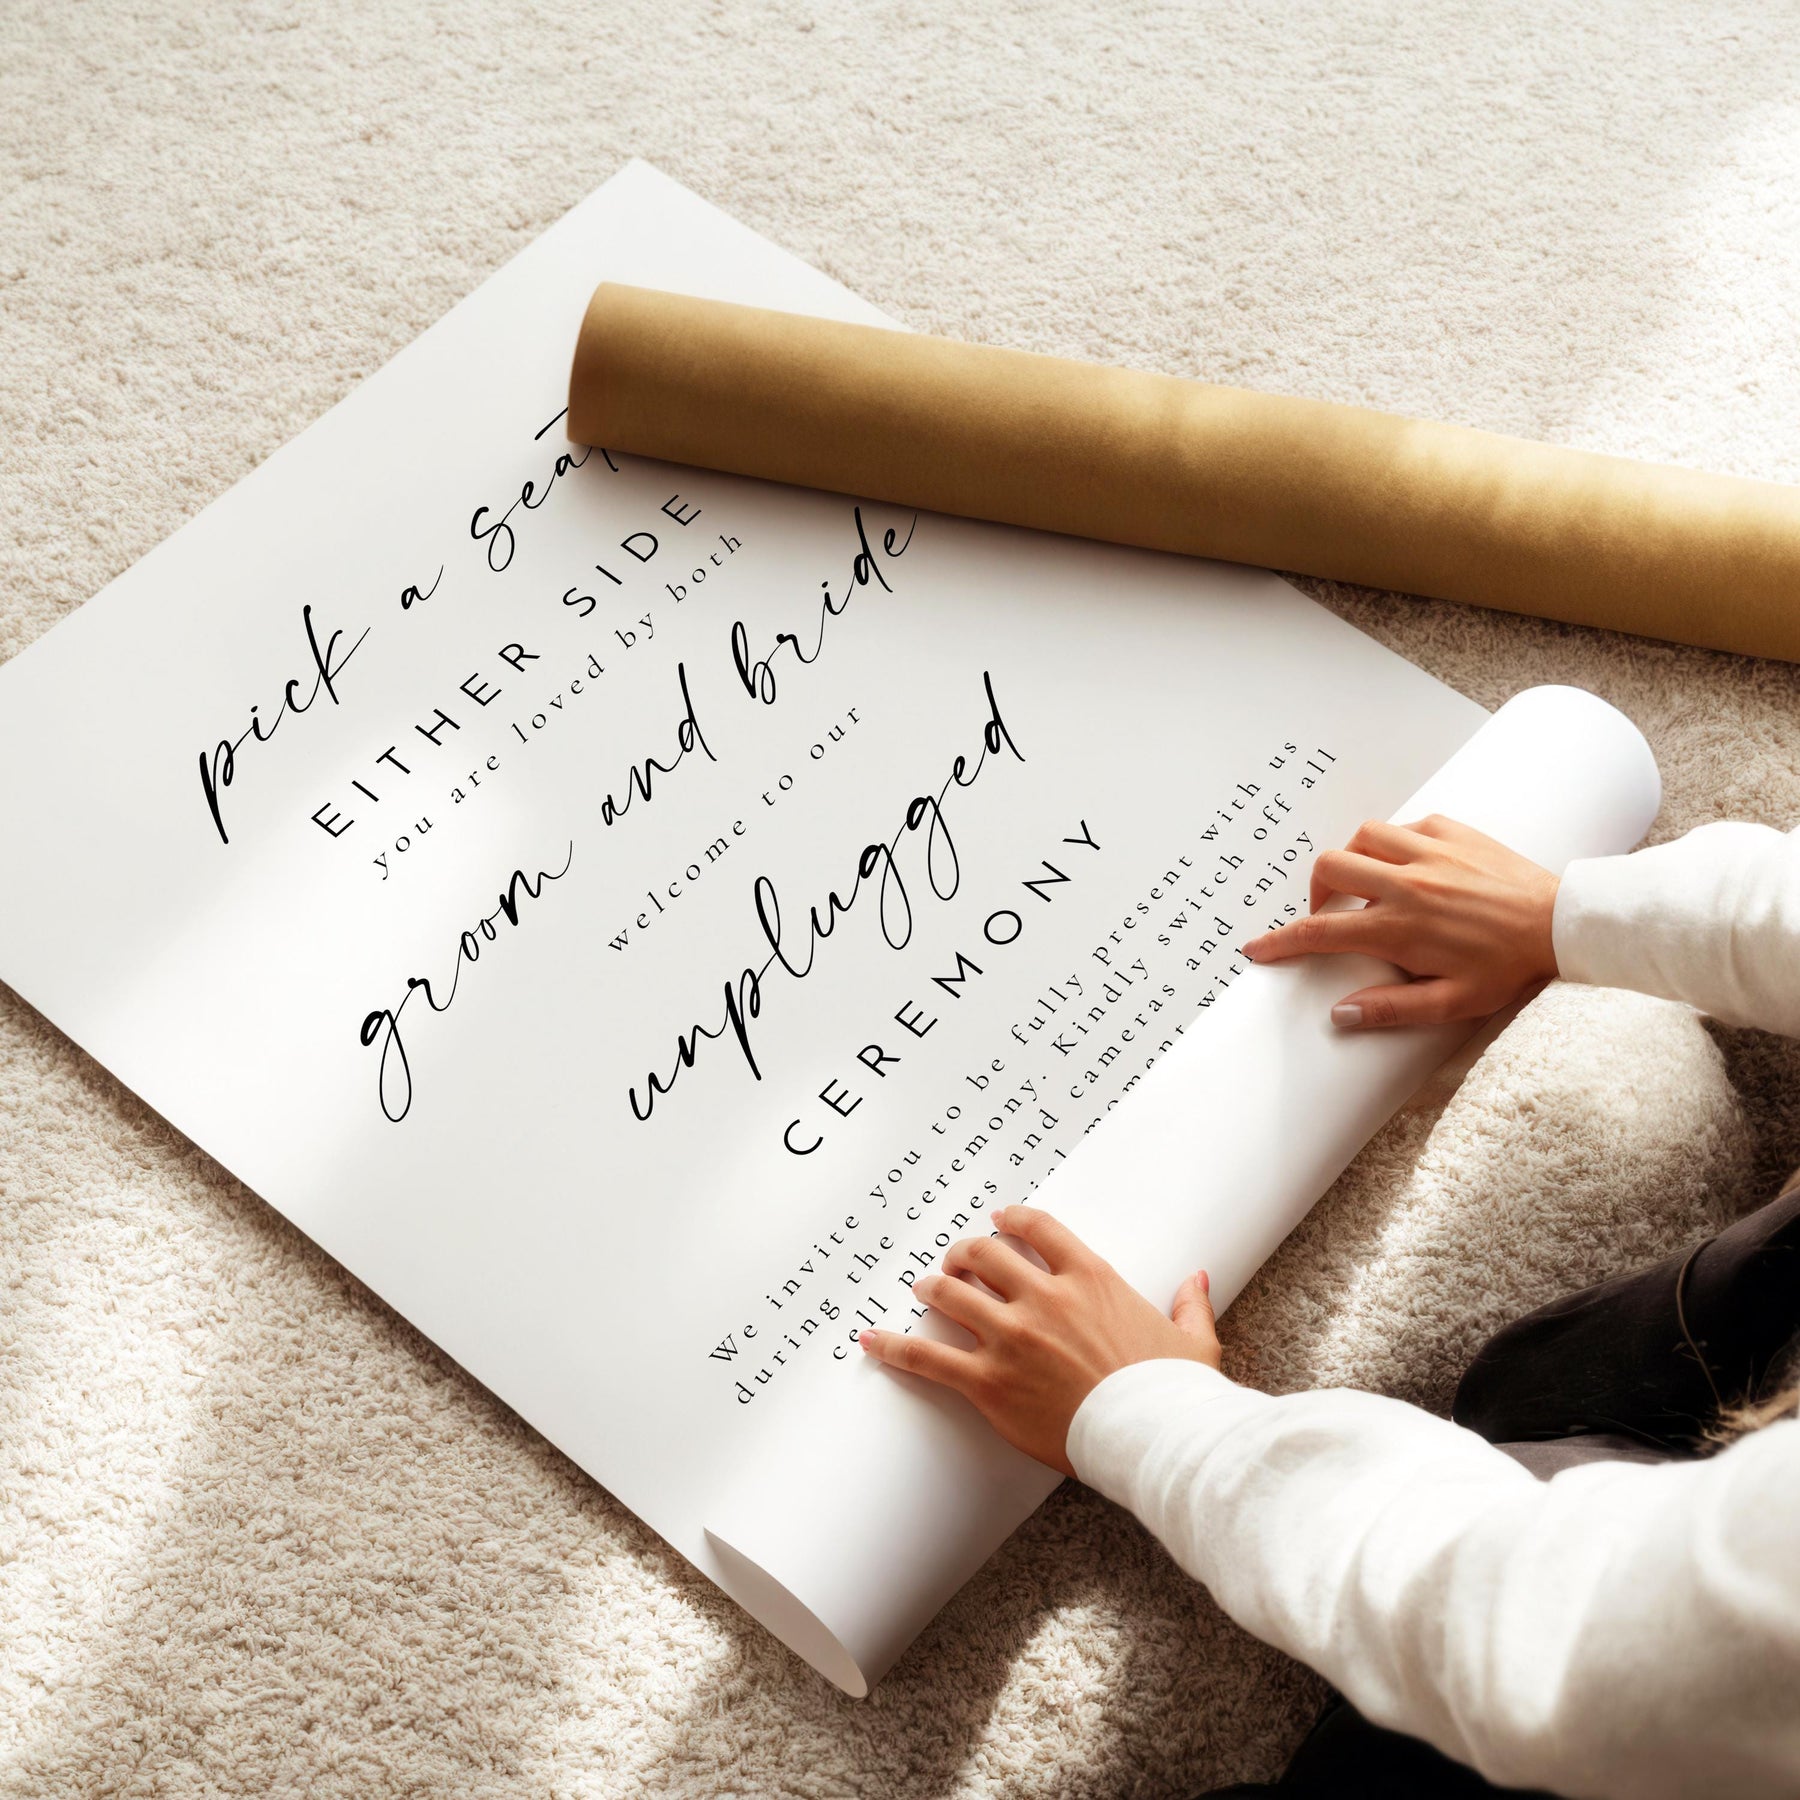 pick a seat
EITHER SIDE
you are loved by both
groom and bride
welcome to our
unplugged
CEREMONY
We invite you to be fully present with us
during the ceremony. Kindly switch off all
cell phones and cameras and enjoy
moment with us.